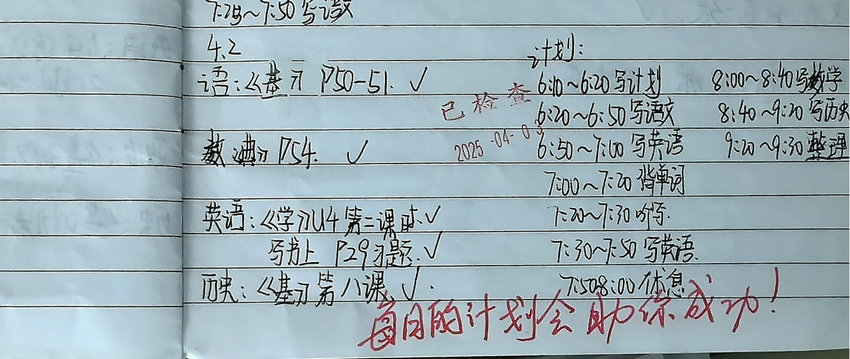 7:25~7:50 写语文
4.2
语:《基》 P50-51. ✓
数《典》 P54. ✓
英语:《学》U4 第二课时.✓
写书上 P29习题.✓
历史:《基》第八课 ✓.
计划:
6:10~6:20 写计划
6:20~6:50 写语文
6:50~7:00 写英语
7:00~7:20 背单词
7:20~7:30 听写.
7:30~7:50 写英语.
7:508:00 休息
8:00~8:40 写数学
8:40~9:20 写历史
9:20~9:30 整理
已检查
2025-04-03
每日的计划会助你成功!